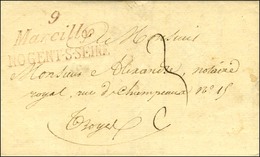 9
Marcilly
NOGENT-S-SEINE
A Monsieur
Monsieur Alexandre, notaire
royal, rue de Champeaux n° 15
Troyes